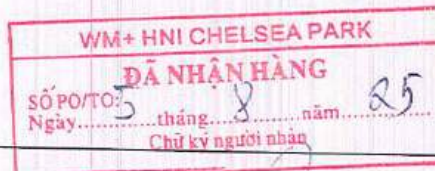 WM+ HNI CHELSEA PARK
ĐÃ NHẬN HÀNG
SỐ PO/TO:
Ngày 5 tháng 8 năm 25
Chữ ký người nhận